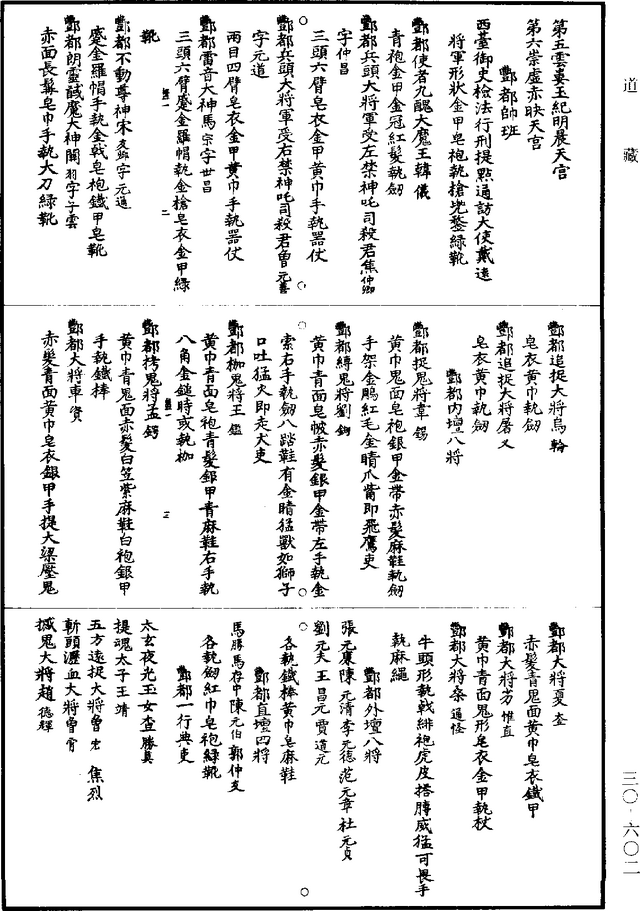 道藏
第五雲裏玉紀明晨天宮
第六崇虛赤映天宮
酆都帥班
西臺御史檢法行刑提點通訪大使戴遠
將軍形狀金甲皂袍執槍兜鍪綠靴
酆都使者九醜大魔王韓儀
青袍金甲金冠紅髮執劒
酆都兵頭大將軍受左禁神吒司殺君焦仲卿
字仲昌
三頭六臂皂衣金甲黃巾手執器仗
酆都兵頭大將軍受右禁神吒司殺君魯元善
字元道
兩目四臂皂衣金甲黃巾手執器仗
酆都雷音大神馬宗字世昌
三頭六臂蹙金羅帽執金槍皂衣金甲綠
靴
酆都不動尊神宋友卿字元通
蹙金羅帽手執金戟皂袍鐵甲皂靴
酆都朗靈馘魔大神關羽字子雲
赤面長鬚皂巾手執大刀綠靴
酆都追捉大將烏輪
皂衣黃巾執劒
酆都追捉大將屠乂
皂衣黃巾執劒
酆都內壇八將
酆都捉鬼將韋錫
黃巾鬼面皂袍銀甲金帶赤髮麻鞋執劒
手架金鵰紅毛金睛爪觜即飛鷹吏
酆都縛鬼將劉鉤
黃巾青面皂帔赤髮銀甲金帶左手執金
索右手執劒八踏鞋有金睛猛獸如獅子
口吐猛火即走犬吏
酆都枷鬼將王鑑
黃巾青面皂袍青髮銀甲青麻鞋右手執
八角金鎚時或執枷
酆都拷鬼將孟鍔
黃巾青鬼面赤髮白笠紫麻鞋白袍銀甲
手執鐵棒
酆都大將車資
赤髮青面黃巾皂衣銀甲手提大梁壓鬼
酆都大將夏奎
赤髮青鬼面黃巾皂衣鐵甲
酆都大將芴惟直
黃巾青面鬼形皂衣金甲執杖
酆都大將桑通怪
牛頭形執戟緋袍虎皮搭膊威猛可畏手
執麻繩
酆都外壇八將
張元廉陳元清李元德范元章杜元貞
劉元夫王昌元賈道元
各執鐵棒黃巾皂麻鞋
酆都直壇四將
馬勝馬存中陳元伯郭仲支
各執劒紅巾皂袍綠靴
酆都一行典吏
太玄夜光玉女查勝真
提魂太子王靖
五方遠捉大將魯宏焦烈
斬頭瀝血大將曾霄
摵鬼大將趙德輝
三〇-六〇二